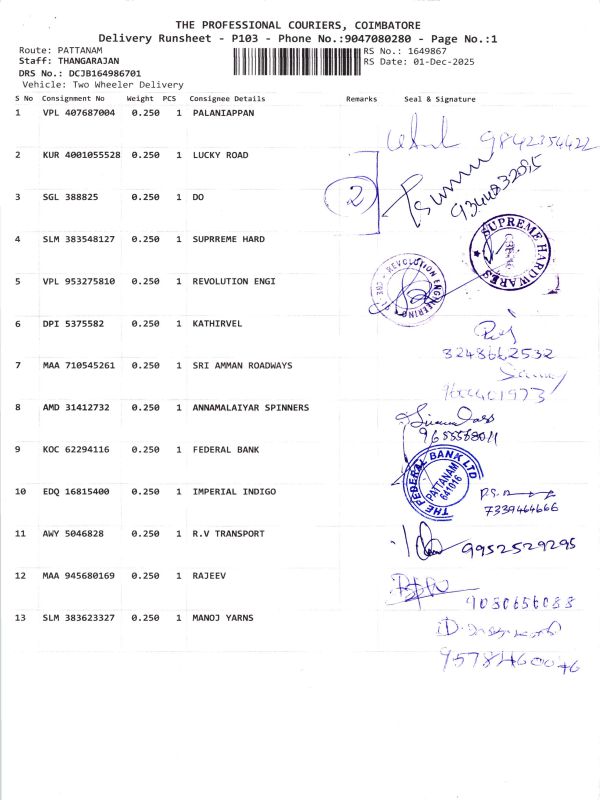 THE PROFESSIONAL COURIERS, COIMBATORE
Delivery Runsheet - P103 - Phone No.:9047080280 - Page No.:1
Route: PATTANAM
RS No.: 1649867
Staff: THANGARAJAN
RS Date: 01-Dec-2025
DRS No.: DCJB164986701
Vehicle: Two Wheeler Delivery
S No Consignment No Weight PCS Consignee Details Remarks Seal & Signature
1 VPL 407687004 0.250 1 PALANIAPPAN
9842354422
2 KUR 4001055528 0.250 1 LUCKY ROAD
3 SGL 388825 0.250 1 DO
2
9344832085
4 SLM 383548127 0.250 1 SUPRREME HARD
SUPREME HARDWARES
5 VPL 953275810 0.250 1 REVOLUTION ENGI
REVOLUTION ENGINEERING
6 DPI 5375582 0.250 1 KATHIRVEL
3248662532
7 MAA 710545261 0.250 1 SRI AMMAN ROADWAYS
9600401973
8 AMD 31412732 0.250 1 ANNAMALAIYAR SPINNERS
9655568011
9 KOC 62294116 0.250 1 FEDERAL BANK
THE FEDERAL BANK LTD
PATTANAM
641016
10 EDQ 16815400 0.250 1 IMPERIAL INDIGO
7339464666
11 AWY 5046828 0.250 1 R.V TRANSPORT
9952529295
12 MAA 945680169 0.250 1 RAJEEV
9030656088
13 SLM 383623327 0.250 1 MANOJ YARNS
9578460046